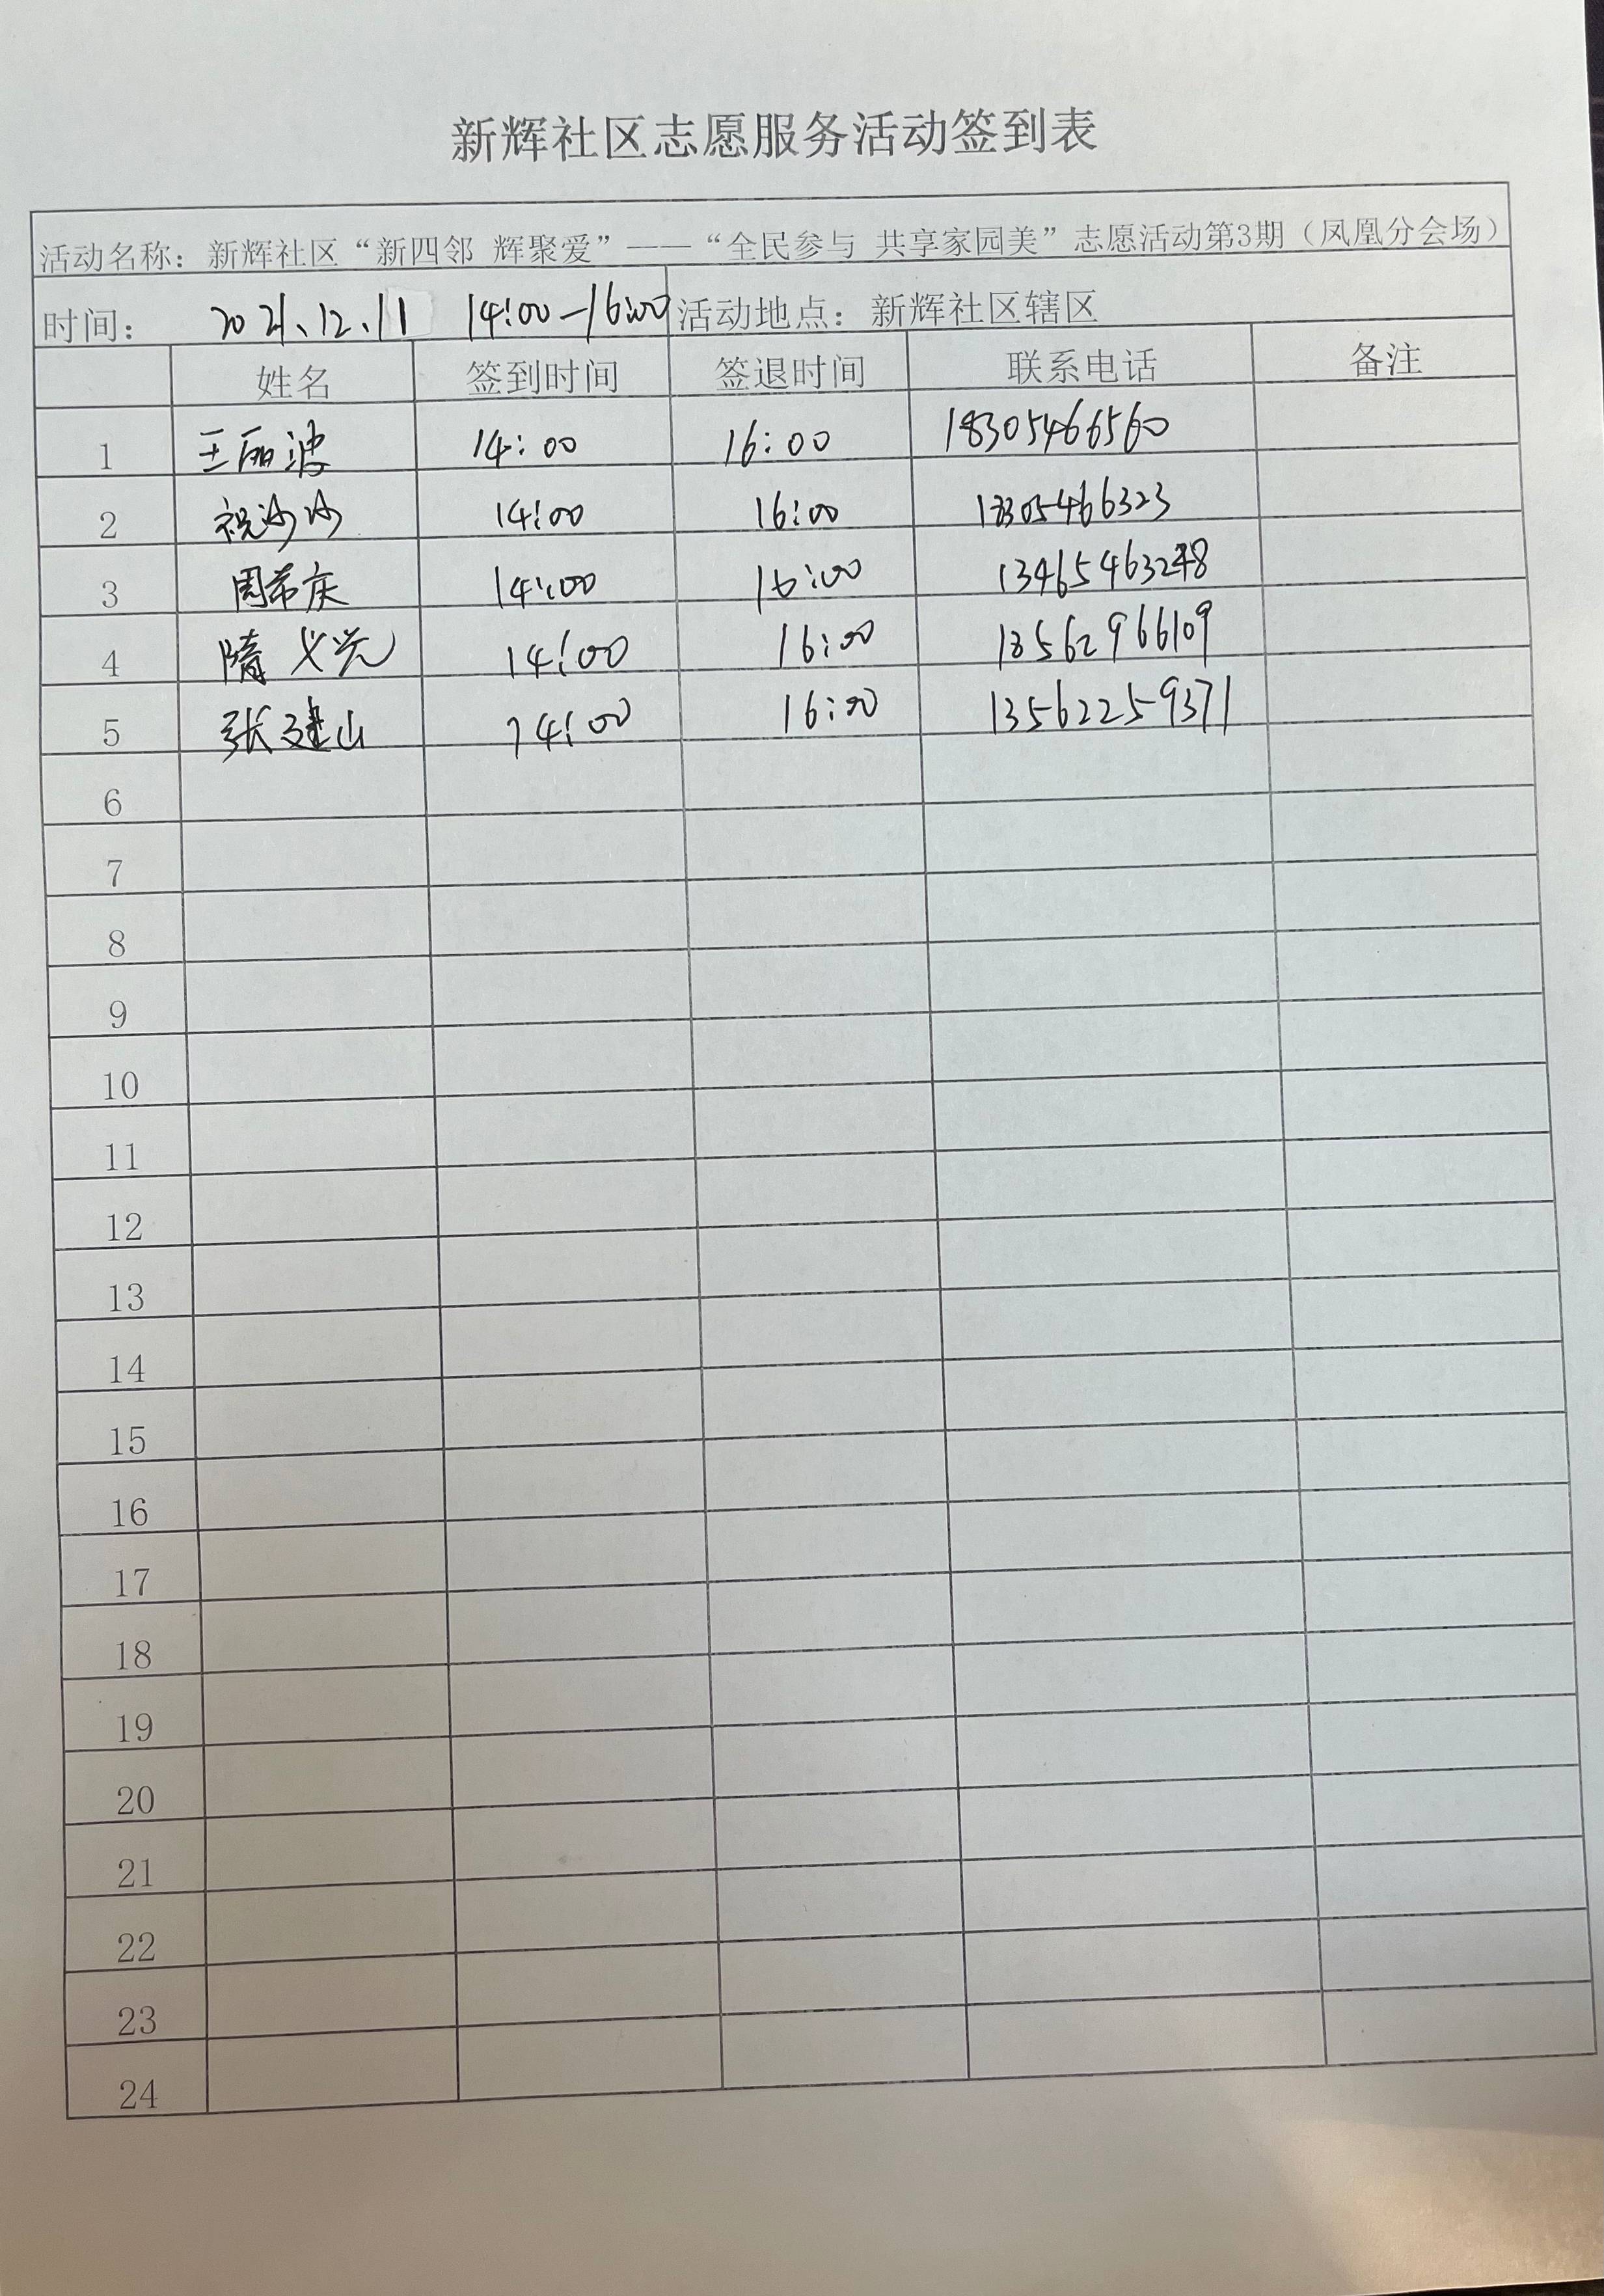 新辉社区志愿服务活动签到表
活动名称：新辉社区“新四邻 辉聚爱”——“全民参与 共享家园美”志愿活动第3期（凤凰分会场）
时间： 2021.12.11 14:00—16:00 活动地点：新辉社区辖区
姓名 签到时间 签退时间 联系电话 备注
1 王丽波 14:00 16:00 18305466560
2 祝沙沙 14:00 16:00 18305466323
3 周希庆 14:00 16:00 13465463248
4 隋义光 14:00 16:00 13562966109
5 张建山 14:00 16:00 13562259371
6
7
8
9
10
11
12
13
14
15
16
17
18
19
20
21
22
23
24